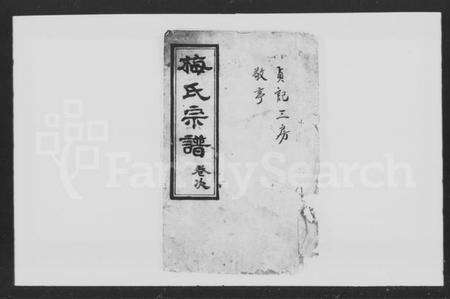 貞記三房
敬亭
梅氏宗譜
卷次
FamilySearch